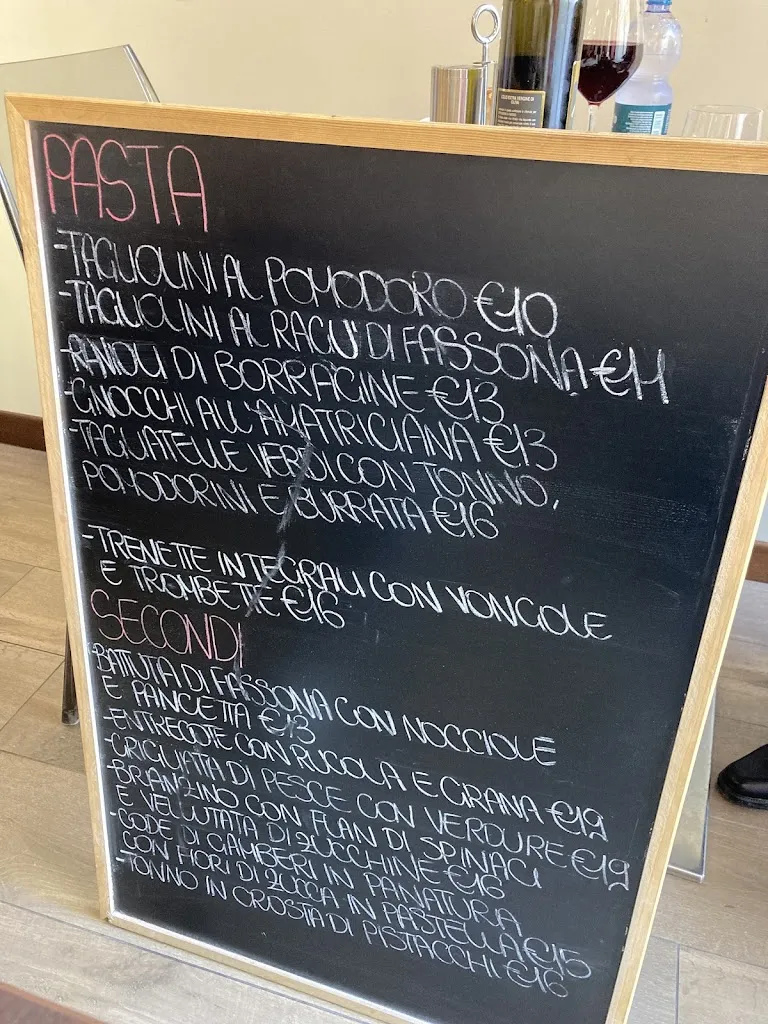 PASTA
-TAGLIOLINI AL POMODORO €10
-TAGLIOLINI AL RAGU' DI FASSONA €11
-RAVIOLI DI BORRAGINE €13
-GNOCCHI ALL'AMATRICIANA €13
-TAGLIATELLE VERDI CON TONNO,
POMODORINI E BURRATA €16
-TRENETTE INTEGRALI CON VONGOLE
E TROMBETTE €16
SECONDI
-BATTUTA DI FASSONA CON NOCCIOLE
E PANCETTA €13
-ENTRECOTE CON RUCOLA E GRANA €19
-GRIGLIATA DI PESCE CON VERDURE €19
-BRANZINO CON FLAN DI SPINACI
E VELLUTATA DI ZUCCHINE €16
-CODE DI GAMBERI IN PANATURA
CON FIORI DI ZUCCA IN PASTELLA €15
-TONNO IN CROSTA DI PISTACCHI €16